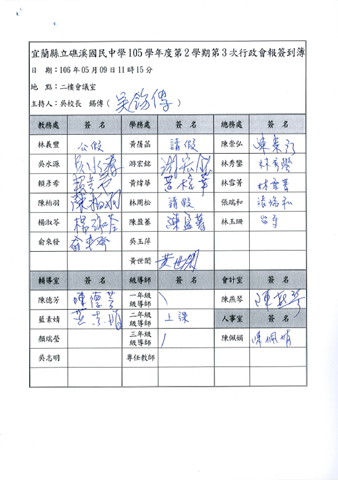 宜蘭縣立礁溪國民中學105學年度第2學期第3次行政會報簽到簿
日 期：106年05月09日11時15分
地 點：二樓會議室
主持人：吳校長 錫傳（ 吳錫傳 ）
教務處 簽 名 學務處 簽 名 總務處 簽 名
林義豐 公假 黃蓓晶 請假 陳崇弘
吳水源 游宏銘 游宏銘 林秀鑾 林秀鑾
賴彥希 黃煒華 林雪菁
陳柏羽 陳柏羽 林周松 請假 張瑞和 張瑞和
楊淑苓 楊淑苓 陳盈蓁 陳盈蓁 林玉珊
俞來發 吳玉萍
黃世閔 黃世閔
輔導室 簽 名 級導師 簽 名 會計室 簽 名
陳德芳 一年級級導師 陳燕琴
藍素婧 二年級級導師 上課 人事室 簽 名
顏瑞瑩 三年級級導師 陳佩娟 陳佩娟
吳志明 專任教師